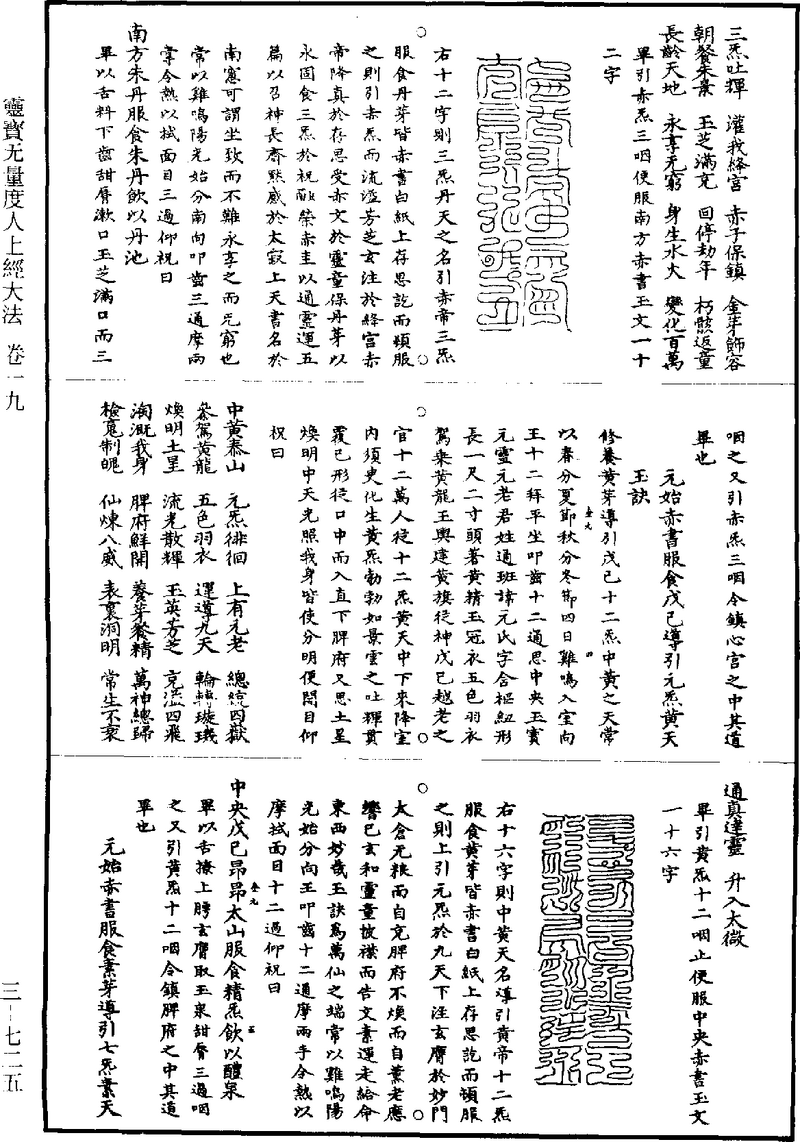 三炁吐輝　灌我絳宮　赤子保鎮　金芽飾容
朝餐朱景　玉芝滿充　回停劫年　朽骸返童
長齡天地　永享无窮　身生水火　變化百萬
畢引赤炁三咽便服南方赤書玉文一十
二字
右十二字則三炁丹天之名引赤帝三炁
服食丹芽皆赤書白紙上存思訖而頓服
之則引赤炁而流溢芳芝玄注於絳宮赤
帝降真於存思受赤文於靈童保丹芽以
永固食三炁於祝融榮赤圭以通靈運五
篇以召神長齋黙感於太寂上天書名於
南宮可謂坐致而不難永享之而无窮也
常以雞鳴陽光始分南向叩齒三通摩兩
掌令熱以拭面目三過仰祝曰
南方朱丹服食朱丹飲以丹池
畢以舌料下齒甜脣漱口玉芝滿口而三
咽之又引赤炁三咽令鎮心宮之中其道
畢也
元始赤書服食戊己導引元炁黃天
玉訣
修養黃芽導引戊己十二炁中黃之天常
以春分夏節秋分冬節四日雞鳴入室向
王十二拜平坐叩齒十二通思中央玉寶
元靈元老君姓通班諱元氏字含樞紐形
長一尺二寸頭著黃精玉冠衣五色羽衣
駕乘黃龍玉輿建黃旗從神戊己越老之
官十二萬人從十二炁黃天中下來降室
內須臾化生黃炁勃勃如景雲之吐輝貫
覆己形從口中而入直下脾府又思土星
煥明中天光照我身皆使分明便閉目仰
祝曰
中黃泰山　元炁徘徊　上有元老　總統四嶽
驂駕黃龍　五色羽衣　運導九天　輪轉璇璣
煥明土星　流光散輝　玉英芳芝　充溢四飛
淘溉我身　脾府鮮開　養芽餐精　萬神總歸
檢䰟制魄　仙煉八威　表裏洞明　常生不衰
通真達靈　升入太微
畢引黃炁十二咽止便服中央赤書玉文
一十六字
右十六字則中黃天名導引黃帝十二炁
服食黃芽皆赤書白紙上存思訖而頓服
之則上引元炁於九天下注玄膺於妙門
太倉无粮而自充脾府不煥而自薰老應
響己玄和靈童披襟而告文素運走給命
東西妙哉玉訣為萬仙之端常以雞鳴陽
光始分向王叩齒十二通摩兩手令熱以
摩拭面目十二過仰祝曰
中央戊己昂昂太山服食精炁飲以醴泉
畢以舌撩上腭玄膺取玉泉甜脣三過咽
之又引黃炁十二咽令鎮脾府之中其道
畢也
元始赤書服食素芽導引七炁素天
靈寶无量度人上經大法　卷一九
三─七二五